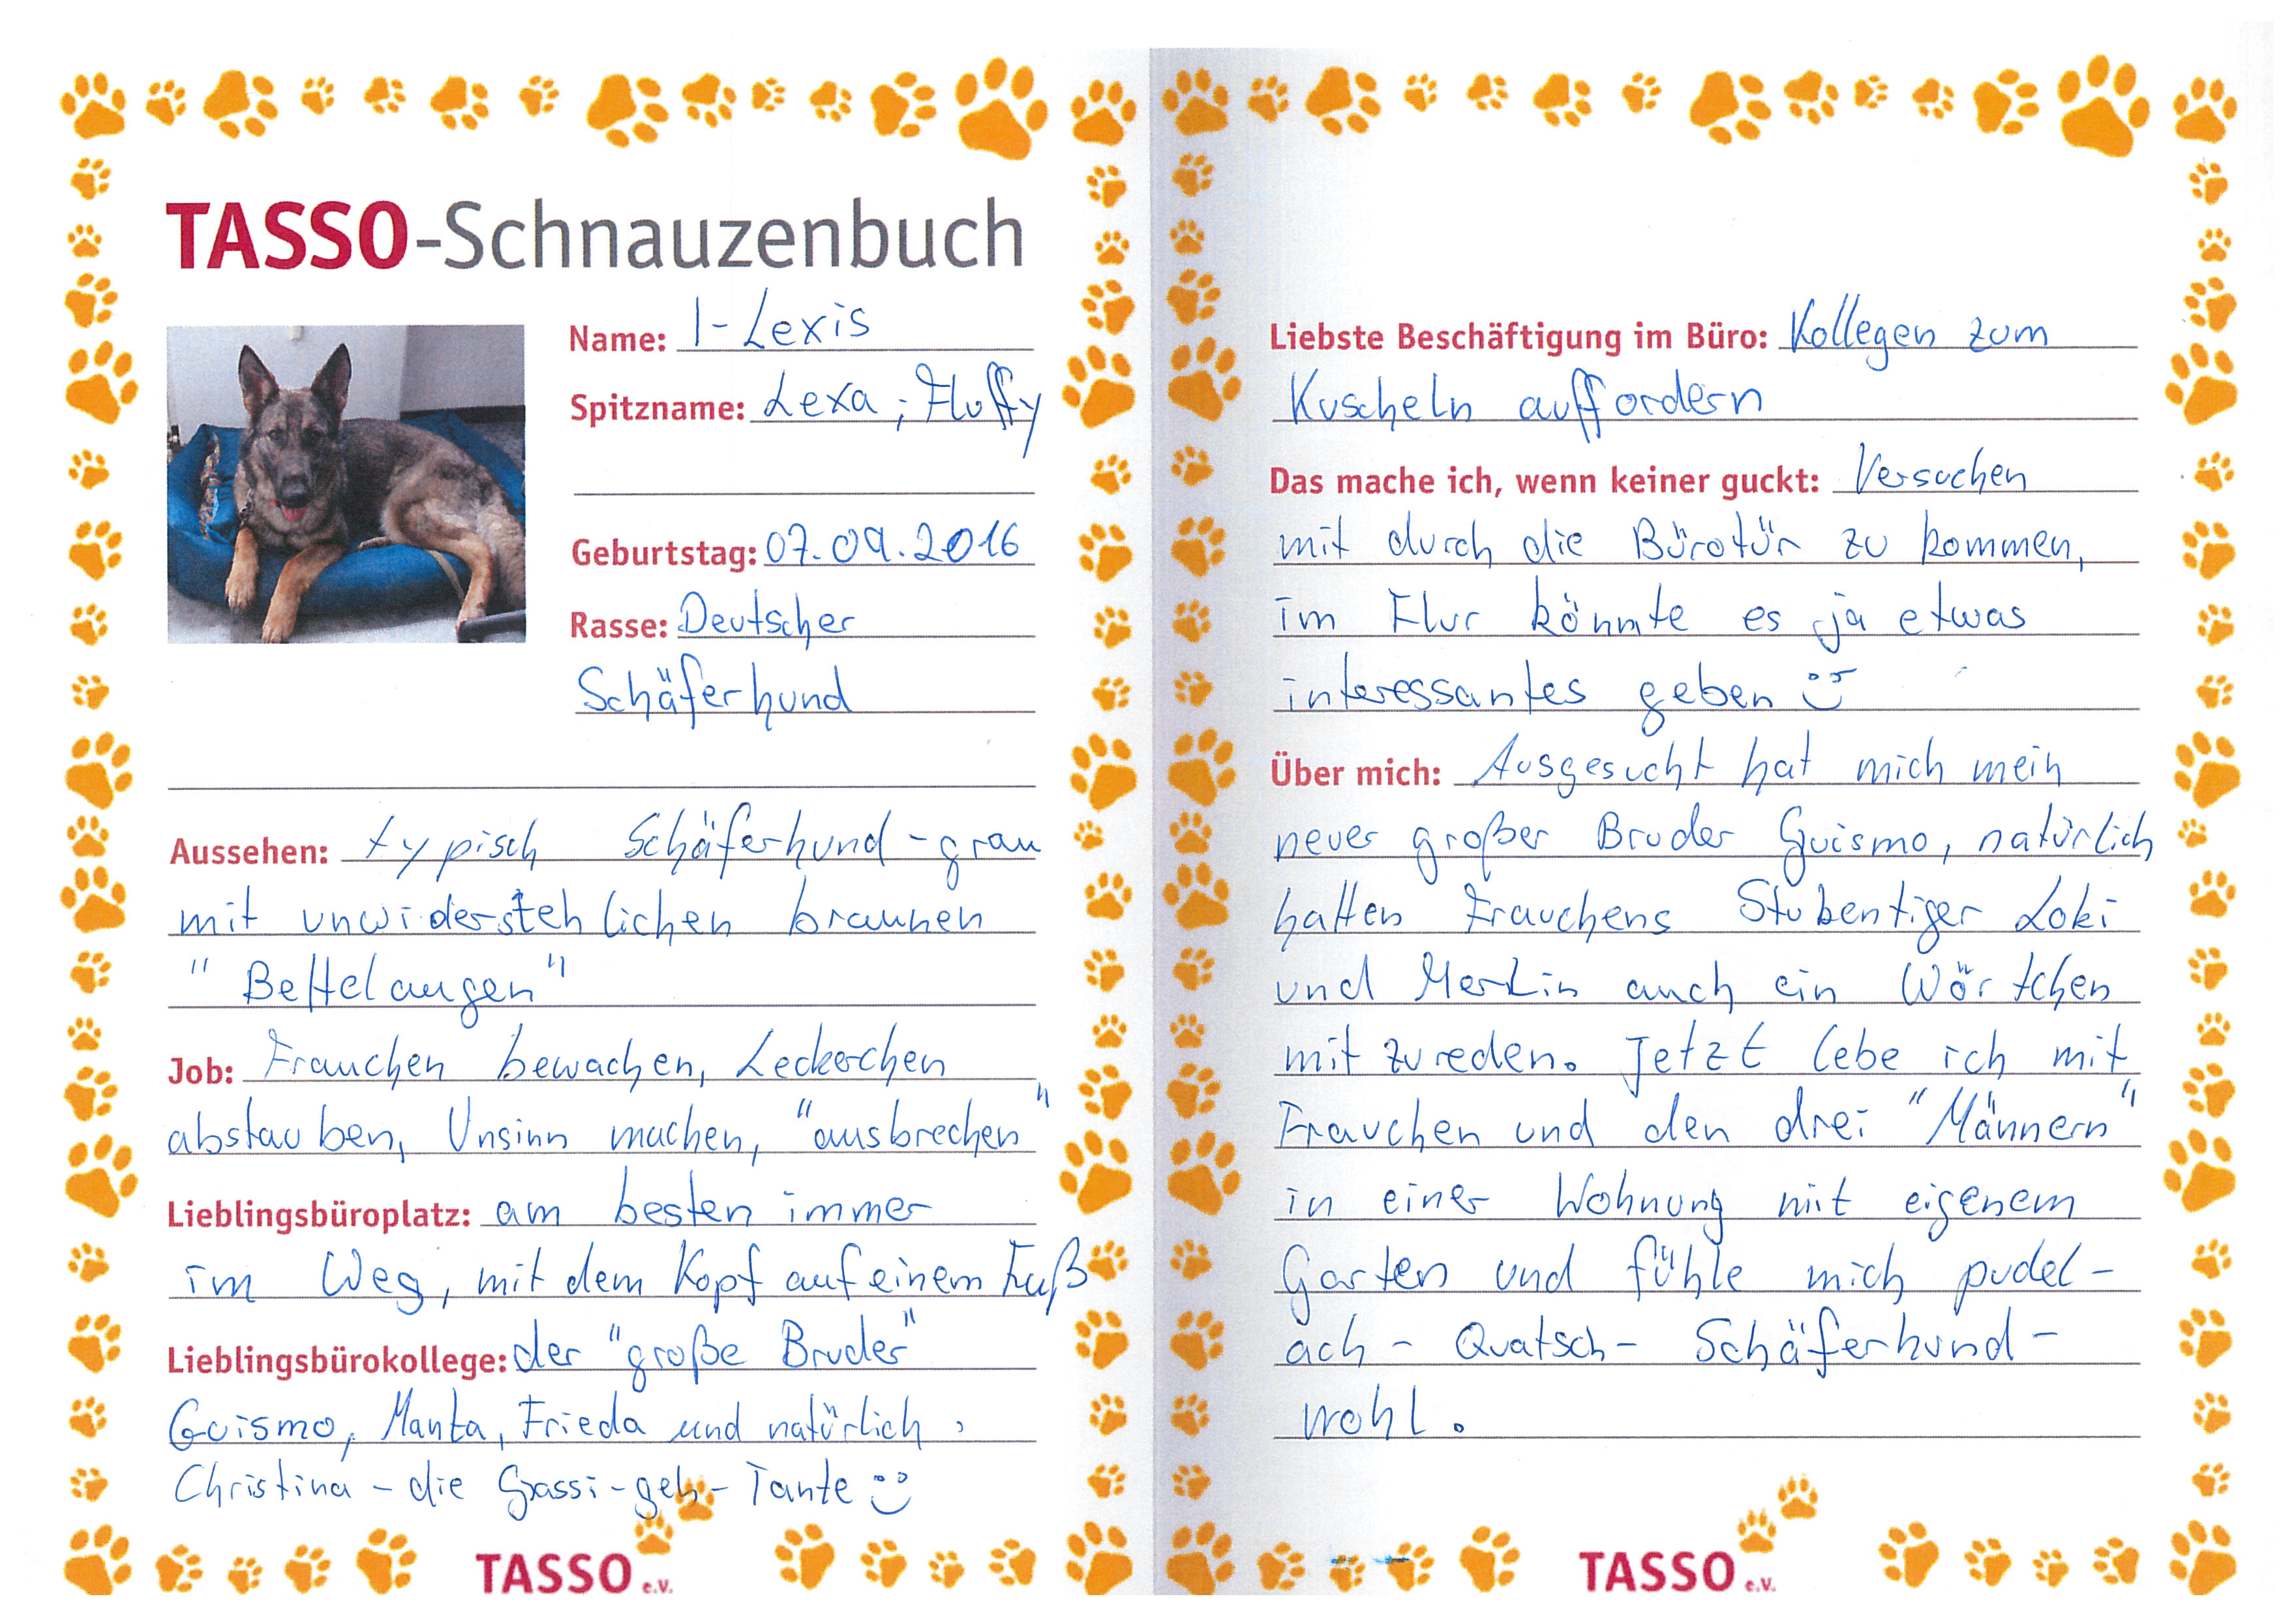 TASSO-Schnauzenbuch
Name: I-Lexis
Spitzname: Lexa, Fluffy
Geburtstag: 07.09.2016
Rasse: Deutscher
Schäferhund
Aussehen: typisch Schäferhund-grau
mit unwiderstehlichen braunen
"Bettelaugen"
Job: Frauchen bewachen, Leckerchen
abstauben, Unsinn machen, "ausbrechen"
Lieblingsbüroplatz: am besten immer
im Weg, mit dem Kopf auf einem Fuß
Lieblingsbürokollege: der "große Bruder"
Guismo, Manta, Frieda und natürlich,
Christina - die Gassi-geh-Tante
TASSO e.V.
Liebste Beschäftigung im Büro: Kollegen zum
Kuscheln auffordern
Das mache ich, wenn keiner guckt: Versuchen
mit durch die Bürotür zu kommen,
im Flur könnte es ja etwas
interessantes geben
Über mich: Ausgesucht hat mich mein
neuer großer Bruder Guismo, natürlich
hatten Frauchens Stubentiger Loki
und Merlin auch ein Wörtchen
mit zu reden. Jetzt lebe ich mit
Frauchen und den drei "Männern"
in einer Wohnung mit eigenem
Garten und fühle mich pudel-
ach - Quatsch - Schäferhund-
wohl.
TASSO e.V.